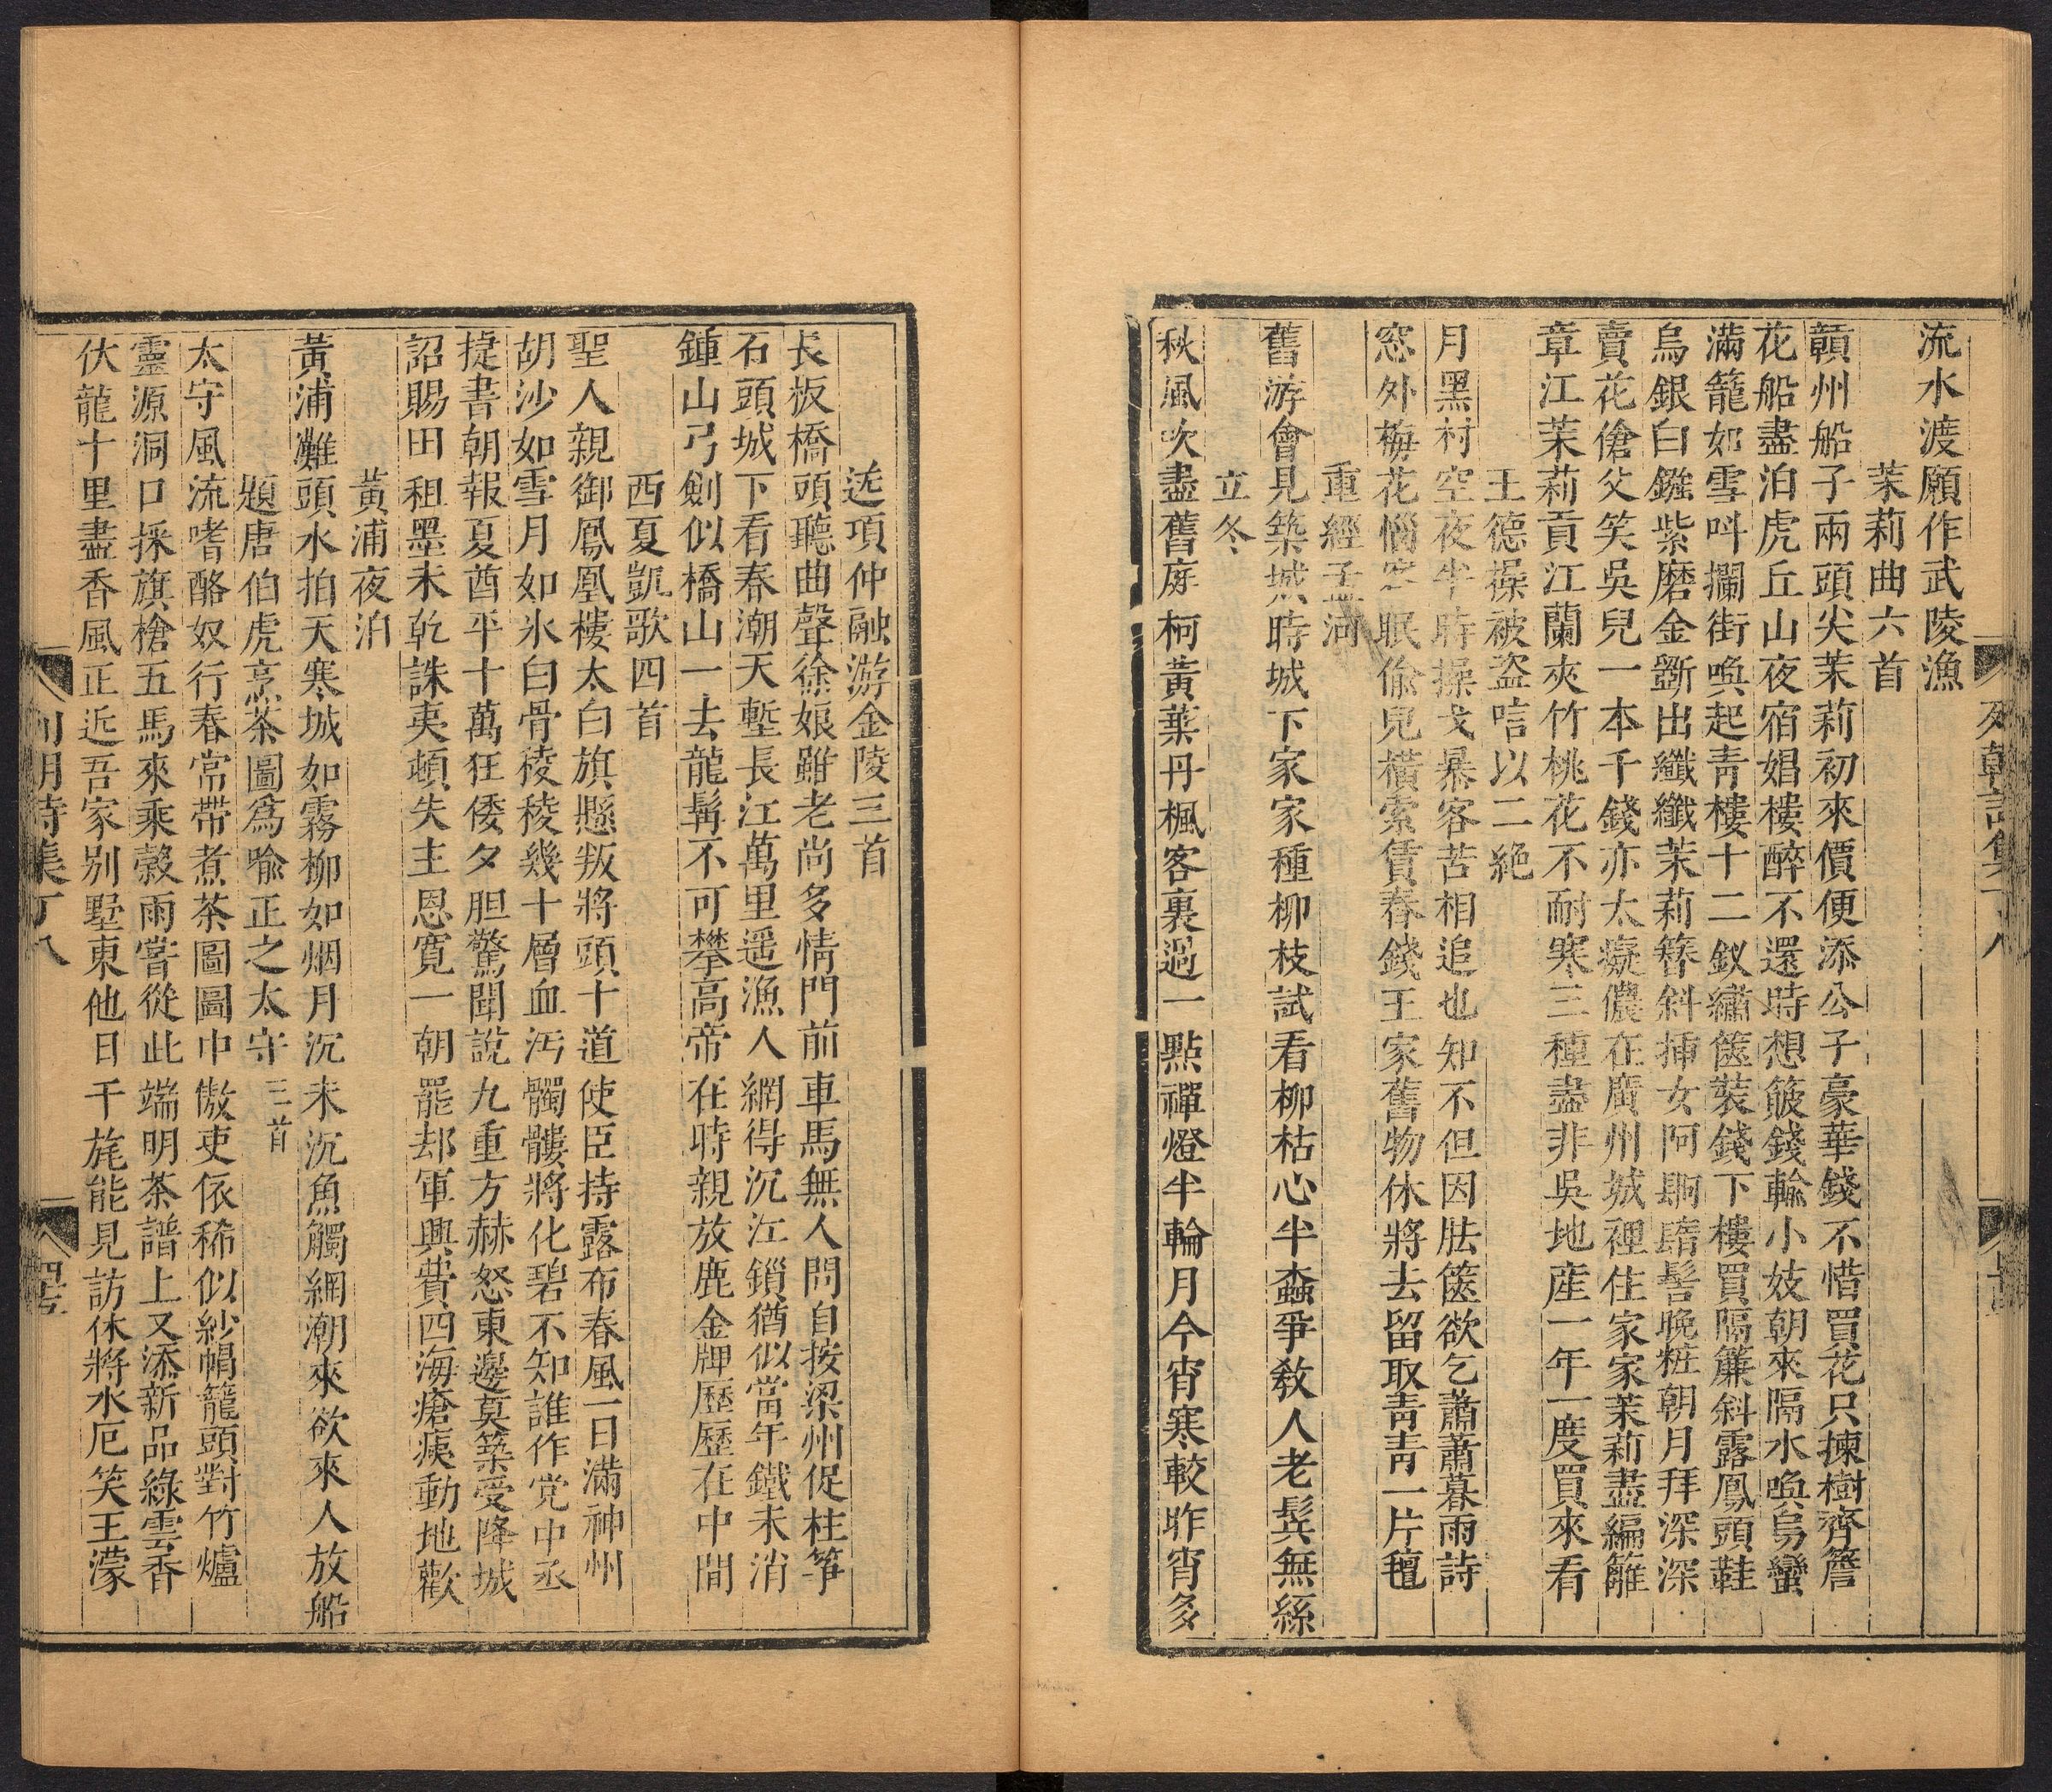 流水渡願作武陵漁
茉莉曲六首
贛州船子兩頭尖茉莉初來價便添公子豪華錢不惜買花只揀樹齊簷
花船盡泊虎丘山夜宿娼樓醉不還時想簸錢輸小妓朝來隔水喚烏蠻
滿籠如雪叫攔街喚起青樓十二釵繡篋裝錢下樓買隔簾斜露鳳頭鞋
烏銀白鏹紫磨金斲出纖纖茉莉簪斜揷女阿䦱䐥髻晚粧朝月拜深深
賣花傖父笑吳兒一本千錢亦太癡儂在廣州城裡住家家茉莉盡編籬
章江茉莉貢江蘭夾竹桃花不耐寒三種盡非吳地産一年一度買來看
王德操被盜唁以二絶
月黑村空夜半時操戈暴客苦相追也知不但因胠篋欲乞蕭蕭暮雨詩
窓外梅花惱客眠偷兒橫索賃舂錢王家舊物休將去留取青青一片氊
重經孟河
舊游曾見築城時城下家家種柳枝試看柳枯心半蠧爭教人老鬂無絲
立冬
秋風吹盡舊庭柯黃葉丹楓客裏過一點禪燈半輪月今宵寒較昨宵多
送項仲融游金陵三首
長板橋頭聽曲聲徐娘雖老尚多情門前車馬無人問自按梁州促柱箏
石頭城下看春潮天塹長江萬里遥漁人網得沉江鎖猶似當年鐵未消
鍾山弓劍似橋山一去龍髯不可攀高帝在時親放鹿金牌歷歷在中間
西夏凱歌四首
聖人親御鳳凰樓太白旗懸叛將頭十道使臣持露布春風一日滿神州
胡沙如雪月如氷白骨稜稜幾十層血汚髑髏將化碧不知誰作党中丞
捷書朝報夏酋平十萬狂倭夕胆驚聞說九重方赫怒東邊莫築受降城
詔賜田租墨未乾誅夷頓失主恩寛一朝罷却軍興費四海瘡痍動地歡
黃浦夜泊
黃浦灘頭水拍天寒城如霧柳如烟月沉未沉魚觸網潮來欲來人放船
題唐伯虎烹茶圖爲喻正之太守三首
太守風流嗜酪奴行春常帶煮茶圖圖中傲吏依稀似紗帽籠頭對竹爐
靈源洞口採旗槍五馬來乘穀雨嘗從此端明茶譜上又添新品綠雲香
伏龍十里盡香風正近吾家别墅東他日千旄能見訪休將水厄笑王濛